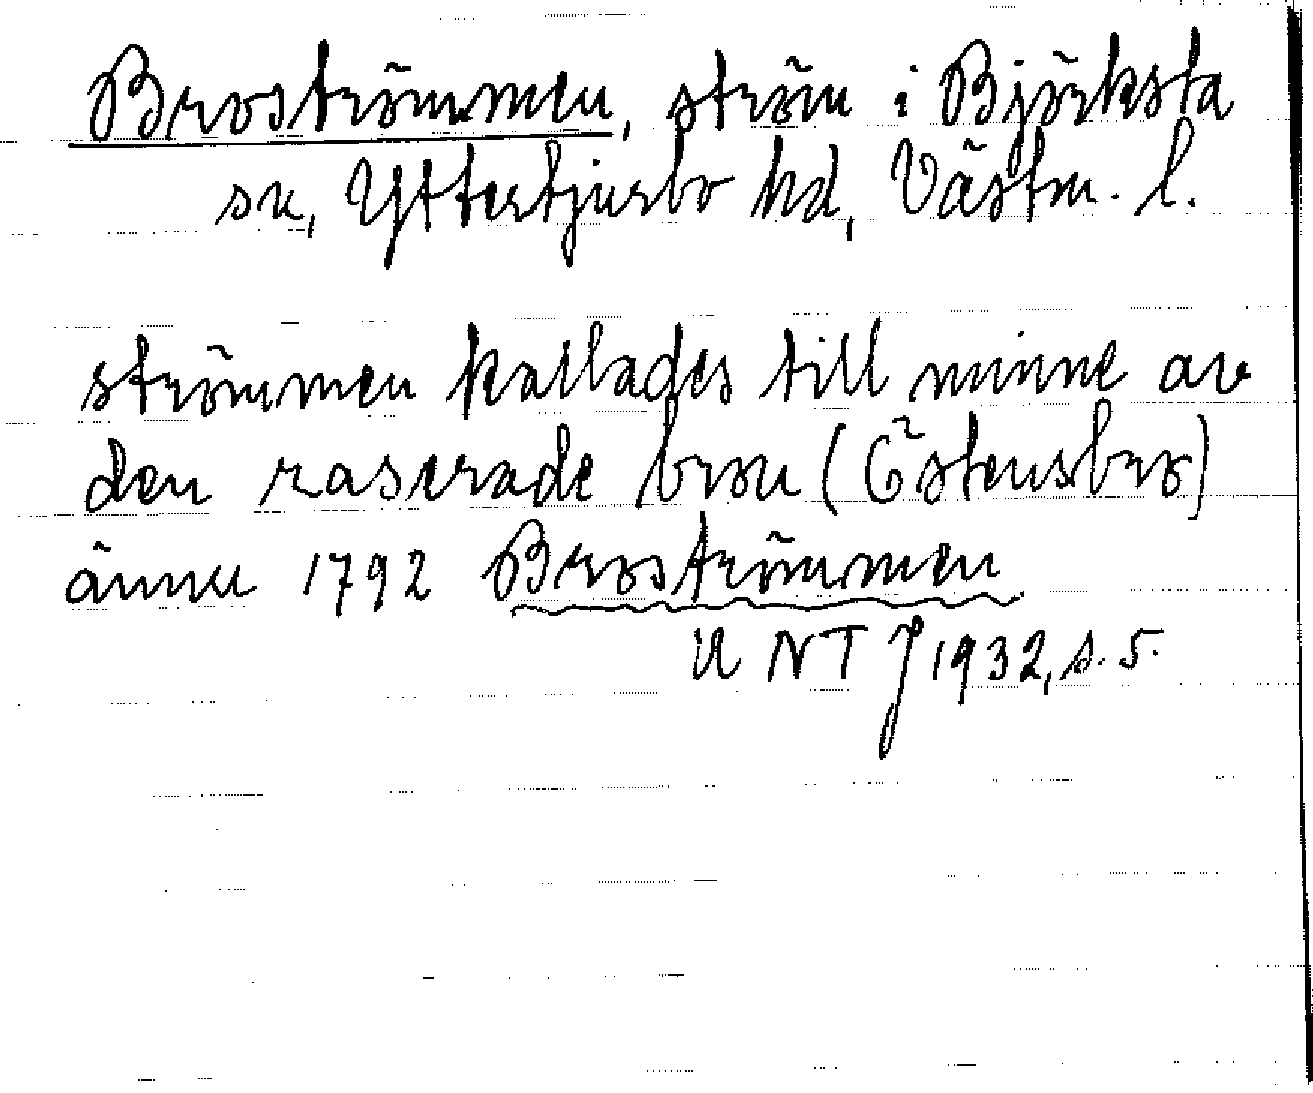 Broströmmen, ström i Björksta
sn, Yttertjurbo hd, Västm. l.
strömmen kallades till minne av
den raserade bron (Östensbro)
ännu 1792 Broströmmen
U N T J 1932, s. 5.